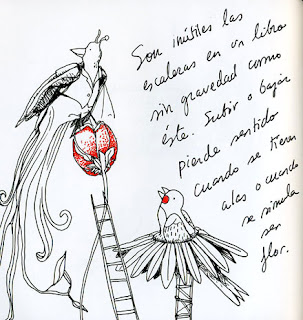 Son inútiles las
escaleras en un libro
sin gravedad como
éste. Subir o bajar
pierde sentido
cuando se tienen
alas o cuando
se simula
ser
flor.